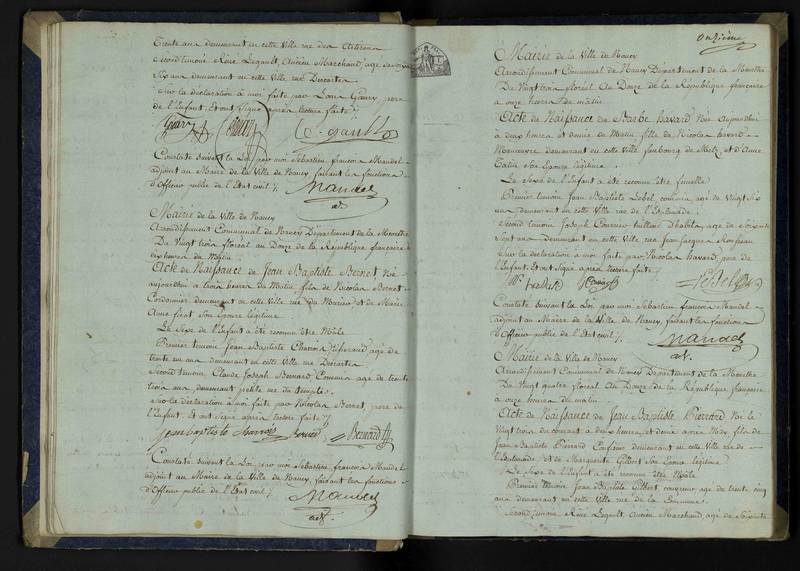 Trente ans demeurant en cette Ville rue des Citoiens
Second temoin Réné Legault, Ancien Marchand, agé de Soixante
Six ans demeurant en cette Ville rue Descartes
Sur la déclaration à moi faite par Louis Gaury, pere
de l'Enfant. Et ont Signé après lecture faite /.
Constaté suivant la Loi, par moi Sebastien francois Mandel
adjoint au Maire de la Ville de Nancy, faisant les fonctions
d'Officier public de l'Etat civil /.
Mandel
adt.
Mairie de la Ville de Nancy
Arrondissement Communal de Nancy Département de la Meurthe
Du Vingt trois floréal an Douze de la République française à
dix heures du Matin
Acte de Naissance de Jean Baptiste Bernet Né
aujourdhui à trois heures du Matin, fils de Nicolas Bernet
Cordonnier demeurant en cette Ville rue du et de Marie
Anne fixet Son Epouse légitime.
Le Sexe de l'Enfant a été reconnu être Mâle
Premier temoin Jean Baptiste agé de
trente un ans demeurant en cette Ville rue Descartes
Second temoin Claude Joseph Bernard Commis agé de trente
trois ans demeurant petite rue du temple.
Sur la déclaration à moi faite par Nicolas Bernet, pere de
l'Enfant. Et ont Signé après lecture faite /.
jean baptiste Bernet Bernard
Constaté suivant la Loi, par moi Sebastien francois Mandel
adjoint au Maire de la Ville de Nancy, faisant les fonctions
d'Officier public de l'Etat civil /.
Mandel
adt.
Onzième
Mairie de la Ville de Nancy
Arrondissement Communal de Nancy Département de la Meurthe
Du Vingt trois floréal an Douze de la République française
à onze heures du matin
Acte de Naissance de Barbe havard Née Aujourdhui
à deux heures et demie du Matin, fille de Nicolas havard
Manœuvre demeurant en cette Ville faubourg de Metz et d'Anne
Son Epouse légitime.
Le Sexe de l'Enfant a été reconnu être femelle
Premier temoin Jean Baptiste Lebel, commis, agé de Vingt Six
ans demeurant en cette Ville rue de l'Esplanade.
Second temoin Joseph tailleur d'habits, agé de Soixante
Sept ans demeurant en cette Ville rue Jean Jacques Rousseau
Sur la déclaration à moi faite par Nicolas havard, pere de
l'Enfant. Et ont Signé après lecture faite.
Lebel
Constaté suivant la Loi, par moi Sebastien francois Mandel
adjoint au Maire de la Ville de Nancy, faisant les fonctions
d'Officier public de l'Etat civil /.
Mandel
adt.
Mairie de la Ville de Nancy
Arrondissement Communal de Nancy Département de la Meurthe
Du Vingt quatre floréal an Douze de la République française
à onze heures du matin
Acte de Naissance de Jean Baptiste Pierrard Né le
Vingt trois du courant à deux heures et demie après Midy, fils de
Jean Baptiste Pierrard demeurant en cette Ville rue de
l'Esplanade et de Marguerite Gilbert Son Epouse légitime
Le Sexe de l'Enfant a été reconnu être Mâle
Premier temoin Jean Baptiste Gilbert, agé de trente cinq
ans demeurant en cette Ville rue de la
Second temoin Réné Legault, Ancien Marchand, agé de Soixante